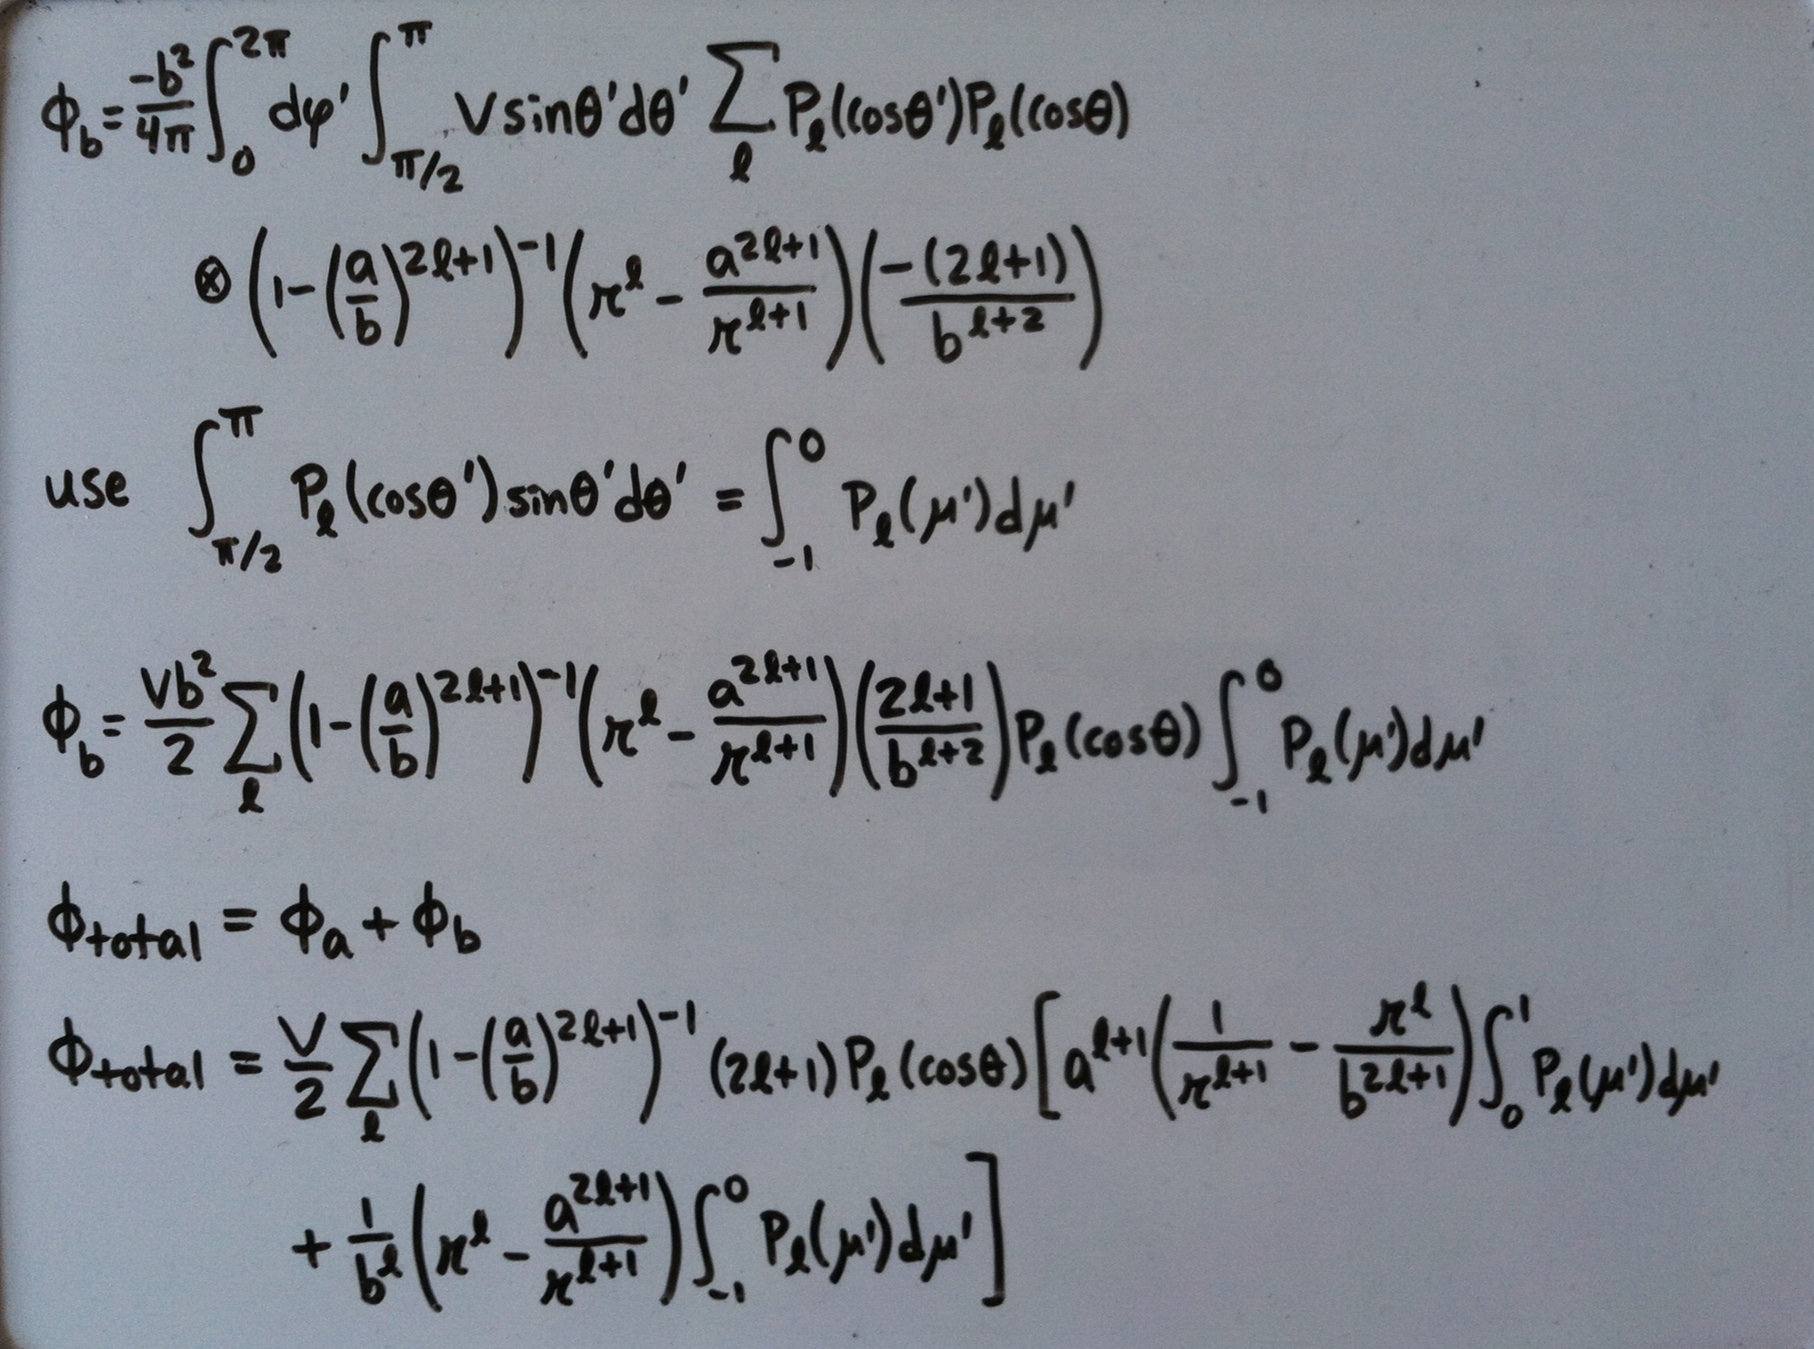 ϕ_b = -b²/4π ∫_0^{2π} dφ' ∫_{π/2}^{π} V sinθ'dθ' ∑_ℓ P_ℓ(cosθ')P_ℓ(cosθ)
⊗ (1-(a/b)^{2ℓ+1})^{-1} (r^ℓ - a^{2ℓ+1}/r^{ℓ+1}) (-(2ℓ+1)/b^{ℓ+2})
use ∫_{π/2}^{π} P_ℓ(cosθ')sinθ'dθ' = ∫_{-1}^{0} P_ℓ(μ')dμ'
ϕ_b = Vb²/2 ∑_ℓ (1-(a/b)^{2ℓ+1})^{-1} (r^ℓ - a^{2ℓ+1}/r^{ℓ+1}) (2ℓ+1/b^{ℓ+2}) P_ℓ(cosθ) ∫_{-1}^{0} P_ℓ(μ')dμ'
ϕ_total = ϕ_a + ϕ_b
ϕ_total = V/2 ∑_ℓ (1-(a/b)^{2ℓ+1})^{-1} (2ℓ+1) P_ℓ(cosθ) [a^{ℓ+1} (1/r^{ℓ+1} - r^ℓ/b^{2ℓ+1}) ∫_0^1 P_ℓ(μ')dμ'
+ 1/b^ℓ (r^ℓ - a^{2ℓ+1}/r^{ℓ+1}) ∫_{-1}^{0} P_ℓ(μ')dμ']